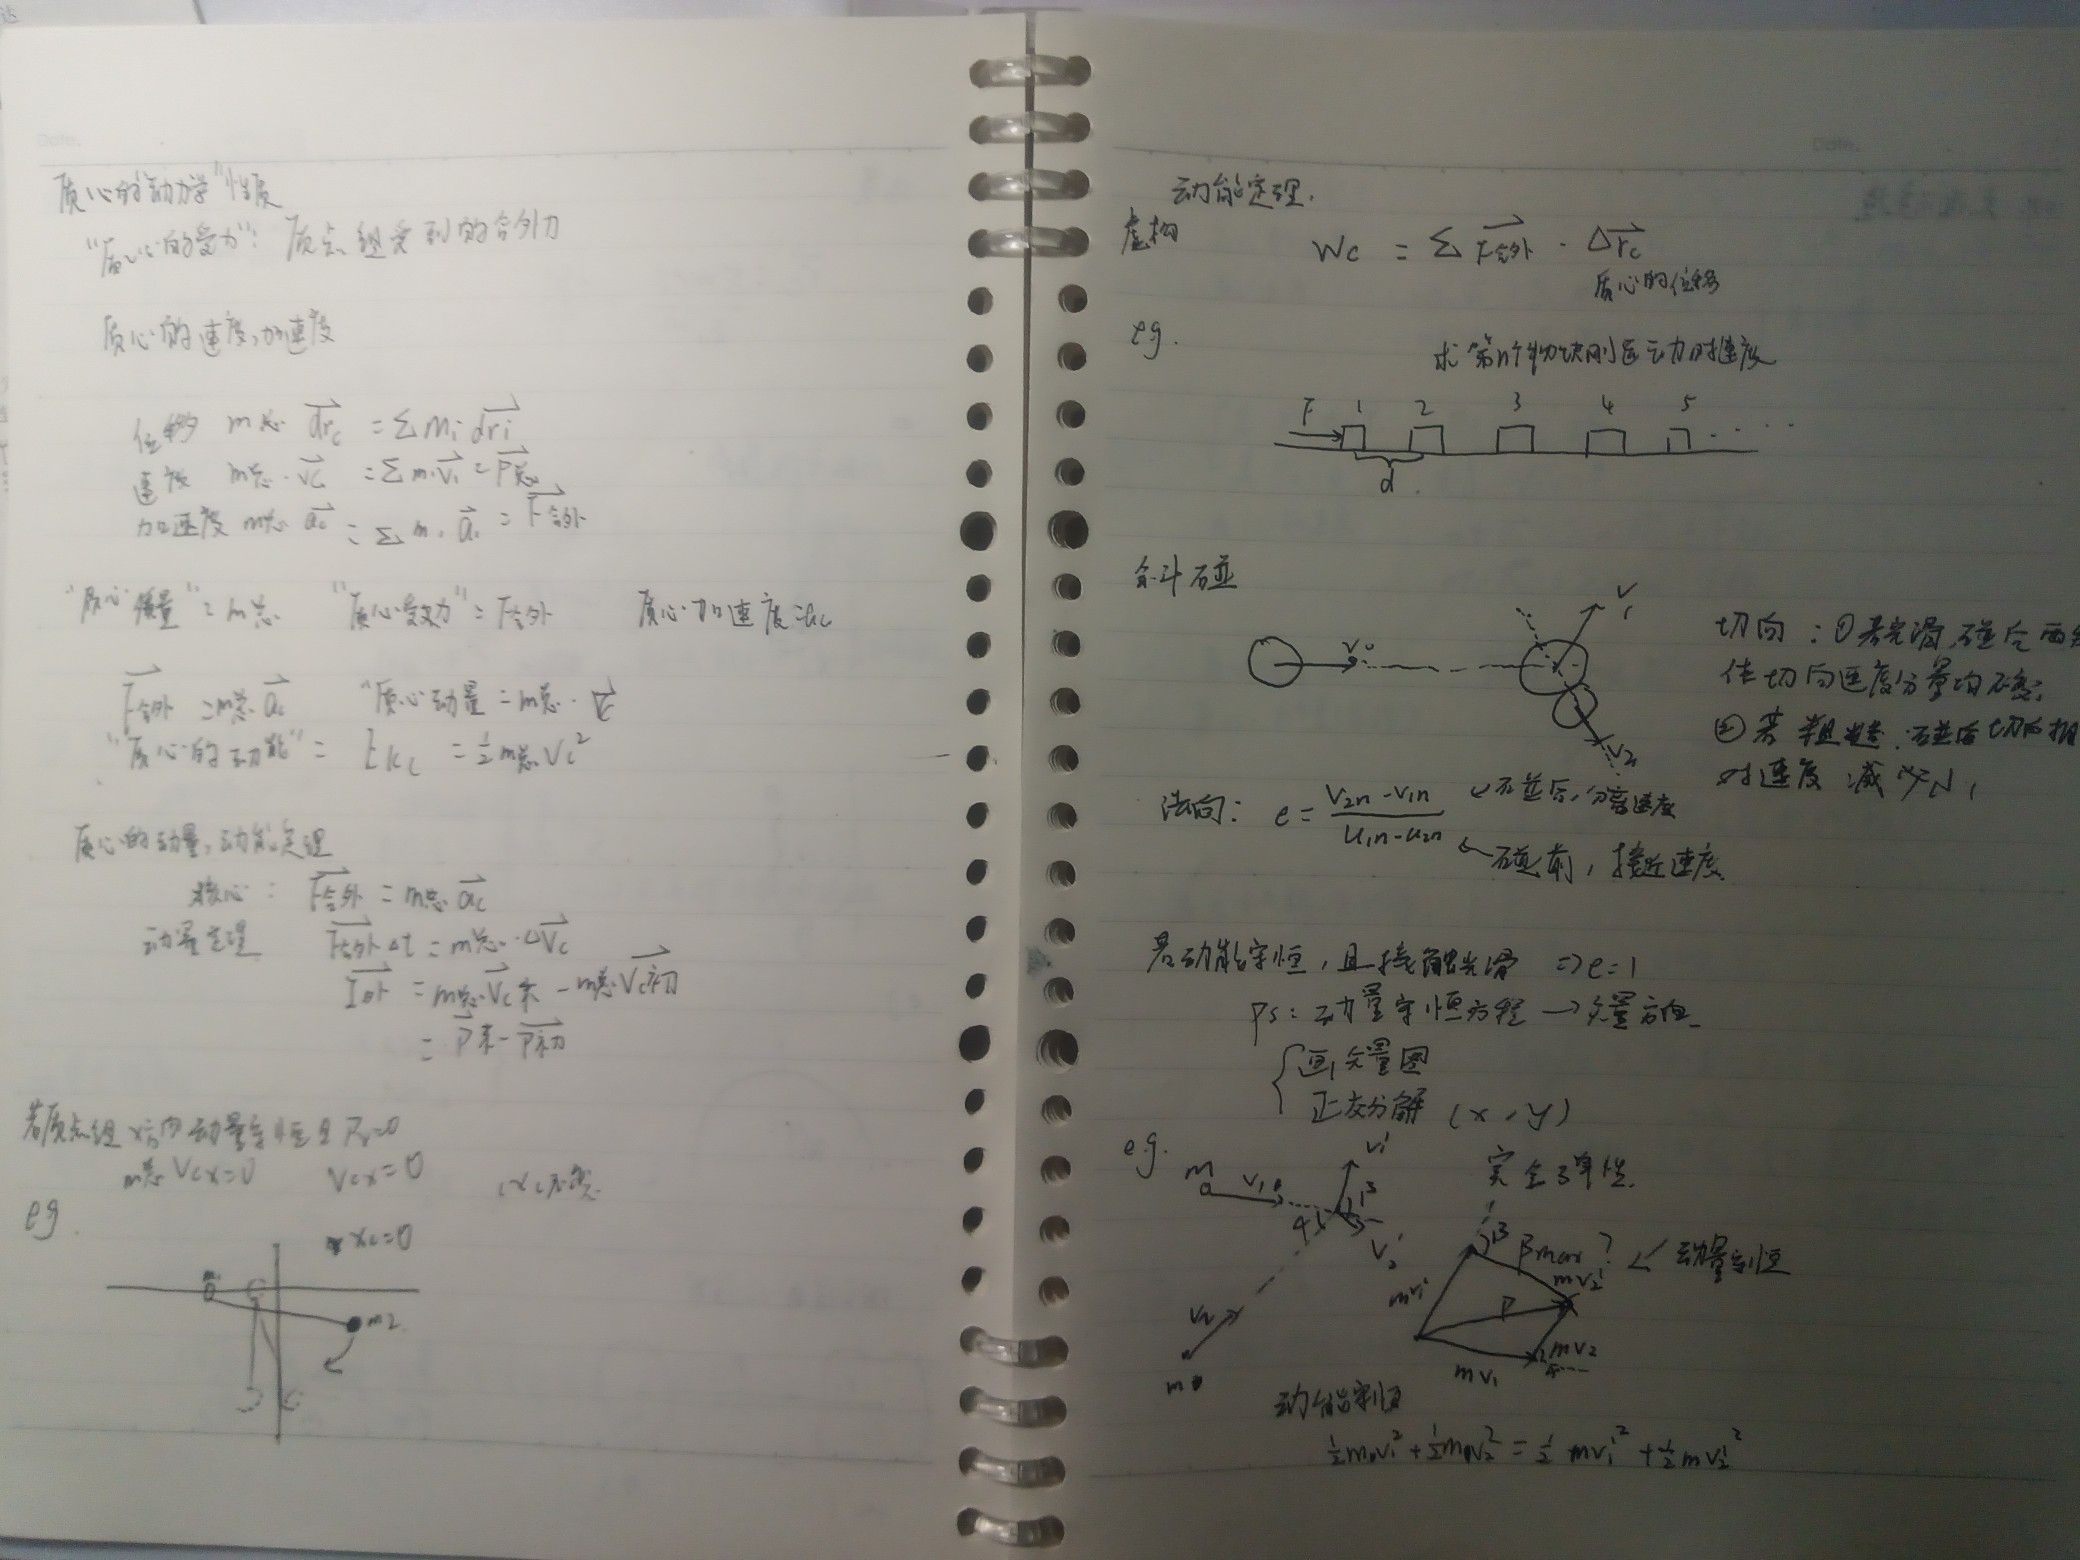 Date.
质心的"动力学"性质
"质心的受力": 质点组受到的合外力
质心的速度,加速度
位移 m总 drc = Σmi dri
速度 m总·vc = Σmi vi = P总
加速度 m总 ac = Σmi ai = F合外
"质心质量" = m总 "质心受力" = F合外 质心加速度=ac
F合外 = m总 ac "质心动量 = m总·vc
"质心的动能" = Ekc = ½m总Vc²
质心的动量,动能定理
核心: F合外 = m总 ac
动量定理 F合外 Δt = m总·ΔVc
I外 = m总Vc末 - m总Vc初
= P末 - P初
若质点组x方向动量守恒且Px=0
m总 Vcx=0 Vcx=0 (xc不变
eg.
xc=0
m2
Date.
动能定理.
虚构 Wc = ΣF合外 · Δrc
质心的位移
eg.
求第n个物块刚运动时速度
F 1 2 3 4 5 ....
d
斜碰
v0
v1
v2
切向: ①若光滑,碰后两
体切向速度分量均不变;
②若粗糙,碰后切向相
对速度减少,
法向: e = (v2n-v1n)/(u1n-u2n) ←碰后,分离速度
←碰前,接近速度
若动能守恒,且接触光滑 ⇒e=1
ps: 动量守恒方程→矢量方向
{画矢量图
正交分解 (x,y)
e.g. m v1 v1' β 完全弹性.
α v2'
β βmax? ∠ 动量守恒
mv1' P mv2'
v2 mv2
m mv1
动能守恒
½mv1² + ½mv2² = ½mv1'² + ½mv2'²